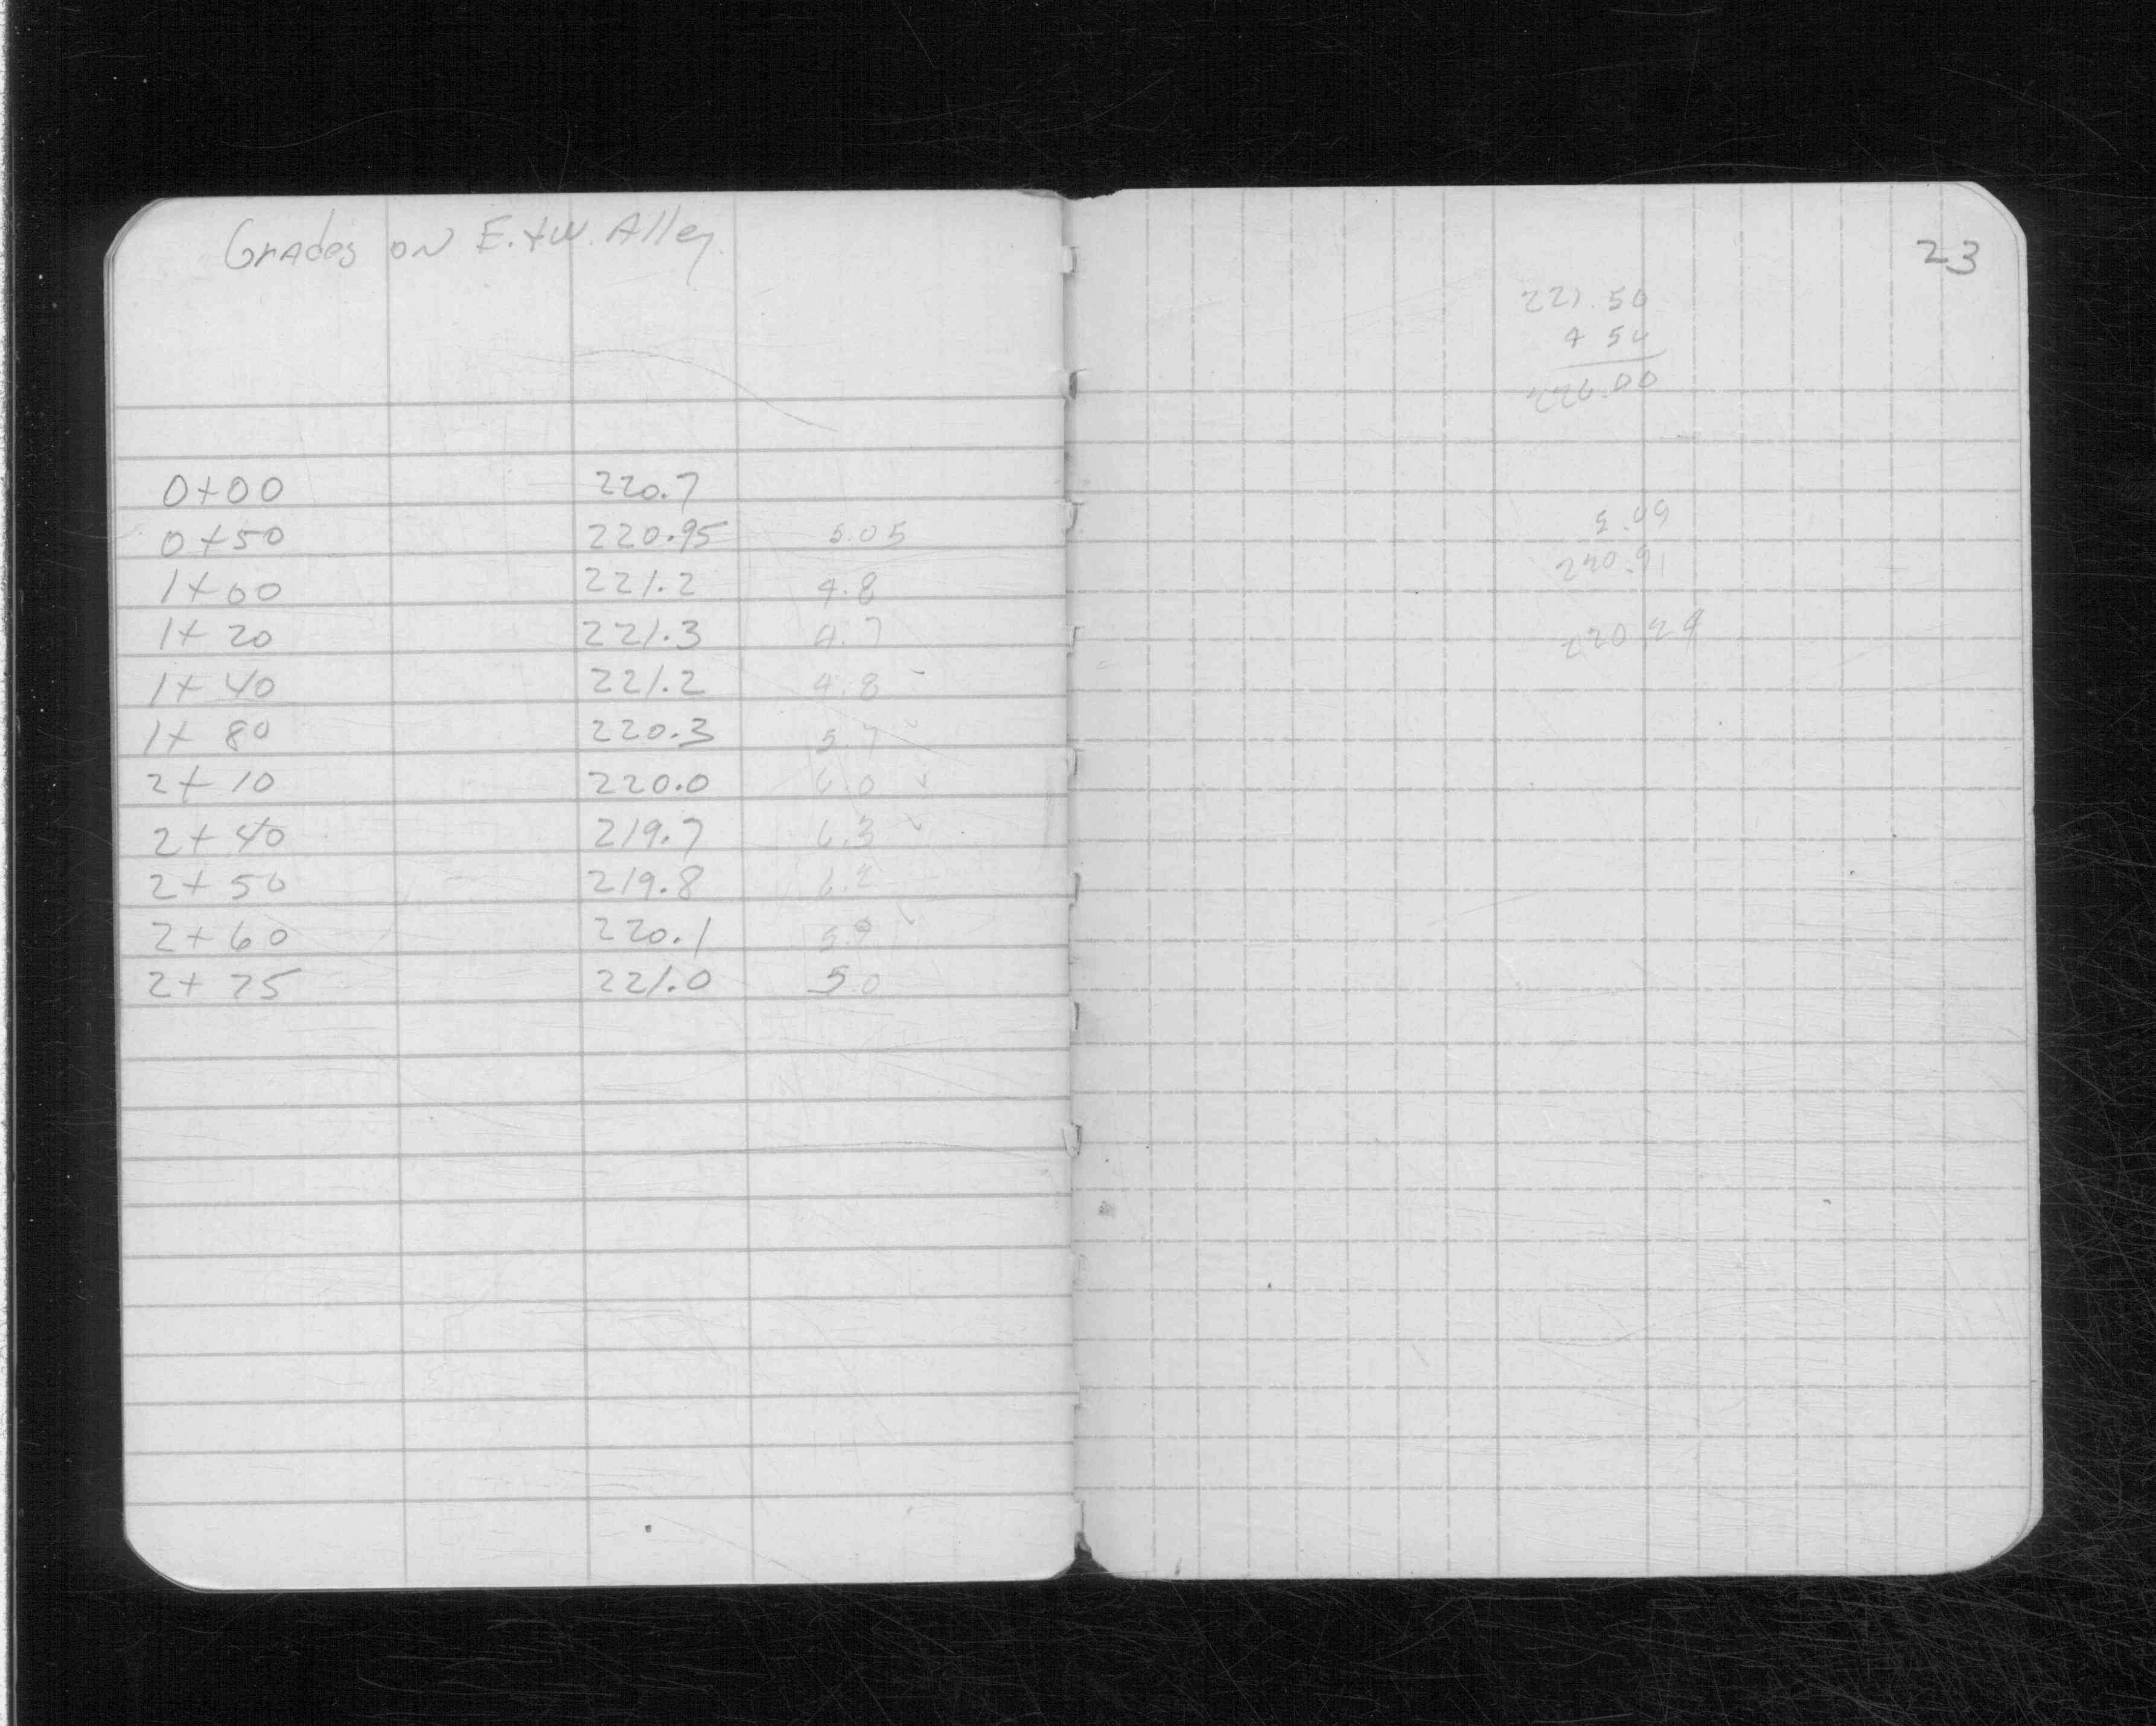 Grades on E. + W. Alley.
0+00 220.7
0+50 220.95 5.05
1+00 221.2 4.8
1+20 221.3 4.7
1+40 221.2 4.8 -
1+80 220.3 5.7
2+10 220.0 6.0 ✓
2+40 219.7 6.3 ✓
2+50 219.8 6.2
2+60 220.1 5.9 ✓
2+75 221.0 5.0
23
221.50
4 50
226.00
5.09
220.91
220.29